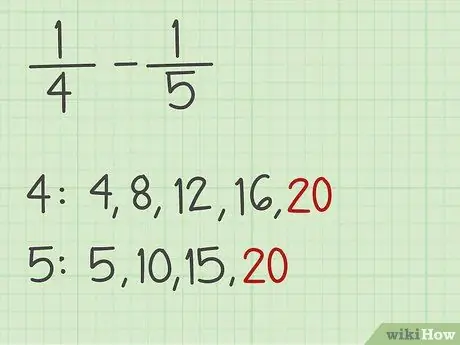 1/4 − 1/5
4: 4, 8, 12, 16, 20
5: 5, 10, 15, 20
wikiHow